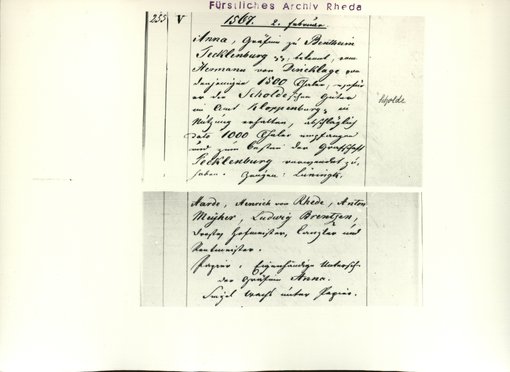 Fürstliches Archiv Rheda
255 V 1567. 2. Februar
Anna, Gräfin zu Bentheim
Tecklenburg pp, bekennt, von
Hermann von Dincklage von
denjenigen 1500 Thaler, wofür
er der Scholdeschen Güter
im Amt Kloppenburg in
Nutzung erhalten, abschläglich
dato 1000 Thaler empfangen
und zum Besten der Grafschaft
Tecklenburg verwendet zu
haben. Zeugen:
Scholde
Aarde, Henrich von Rhede, Anton
Meyher, Ludwig Brentzen,
Drosten, Hofmeister, Canzler und
Rentmeister.
Papier. Eigenhändige Untersch.
der Gräfin Anna.
Siegel unter Papier.